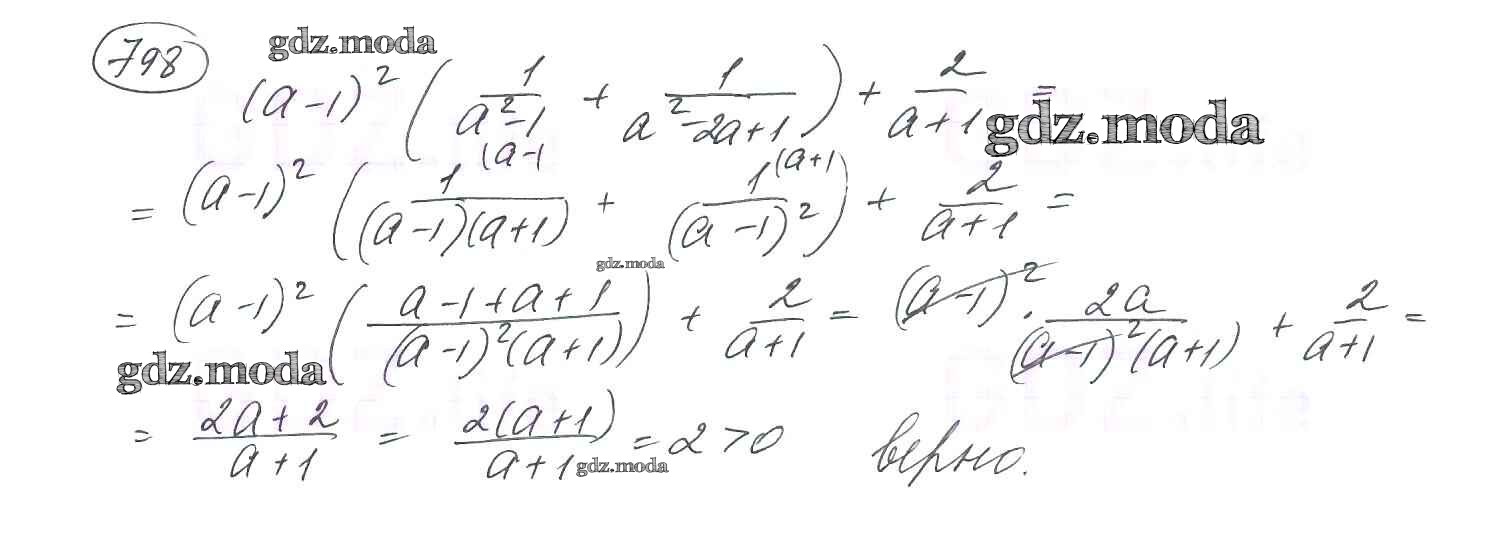 798 gdz.moda
(a-1)² (1/(a²-1) + 1/(a²-2a+1)) + 2/(a+1) = gdz.moda
= (a-1)² (1 (a-1 /((a-1)(a+1)) + 1 (a+1) /(a-1)²) + 2/(a+1) =
gdz.moda
= (a-1)² ((a-1+a+1)/((a-1)²(a+1))) + 2/(a+1) = (a-1)² · 2a/((a-1)²(a+1)) + 2/(a+1) =
gdz.moda
= (2a+2)/(a+1) = 2(a+1)/(a+1) = 2 > 0 верно.
gdz.moda